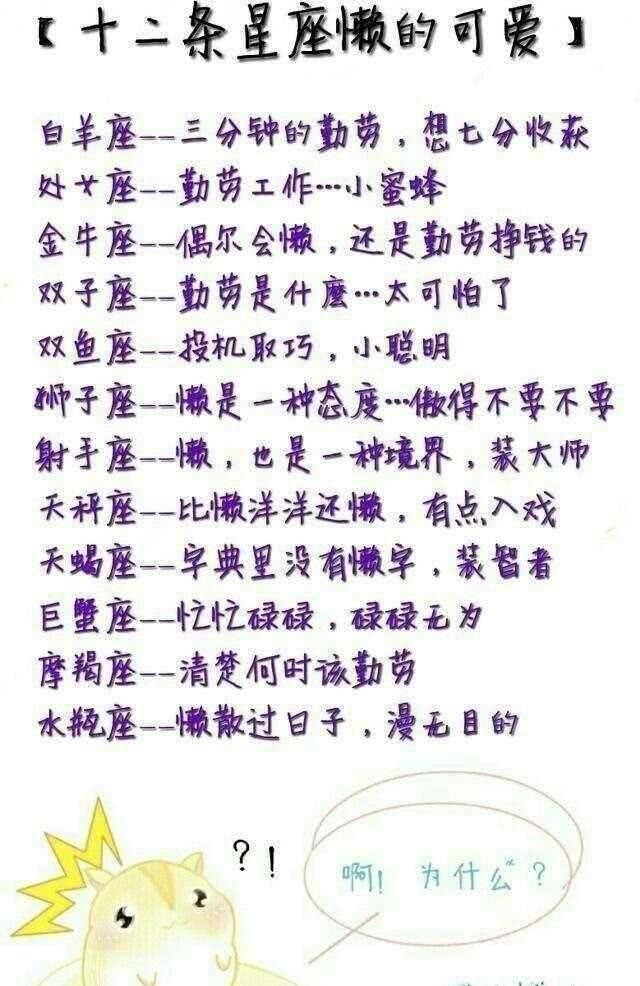 【十二条星座懒的可爱】
白羊座--三分钟的勤劳，想七分收获
处女座--勤劳工作…小蜜蜂
金牛座--偶尔会懒，还是勤劳挣钱的
双子座--勤劳是什麽…太可怕了
双鱼座--投机取巧，小聪明
狮子座--懒是一种态度…傲得不要不要
射手座--懒，也是一种境界，装大师
天秤座--比懒洋洋还懒，有点入戏
天蝎座--字典里没有懒字，装智者
巨蟹座--忙忙碌碌，碌碌无为
摩羯座--清楚何时该勤劳
水瓶座--懒散过日子，漫无目的
?!
啊! 为什么?